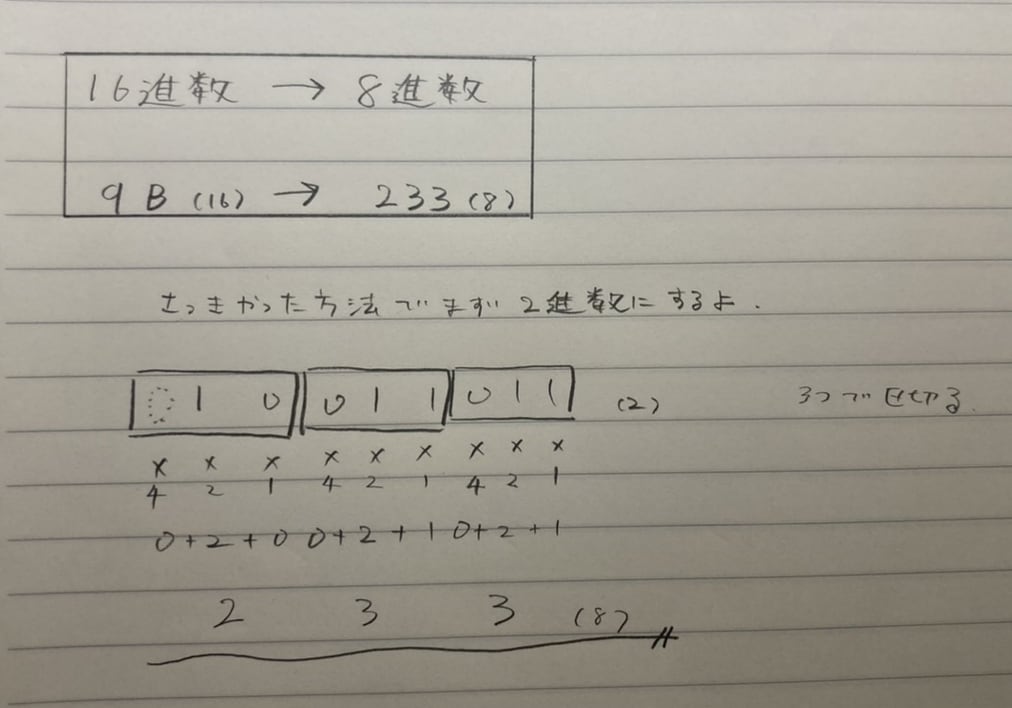 16進数 → 8進数
9B (16) → 233 (8)
さっきやった方法でまず2進数にするよ.
0 1 0 0 1 1 0 1 1 (2) 3つで区切る.
× × × × × × × × ×
4 2 1 4 2 1 4 2 1
0+2+0 0+2+1 0+2+1
2 3 3 (8)